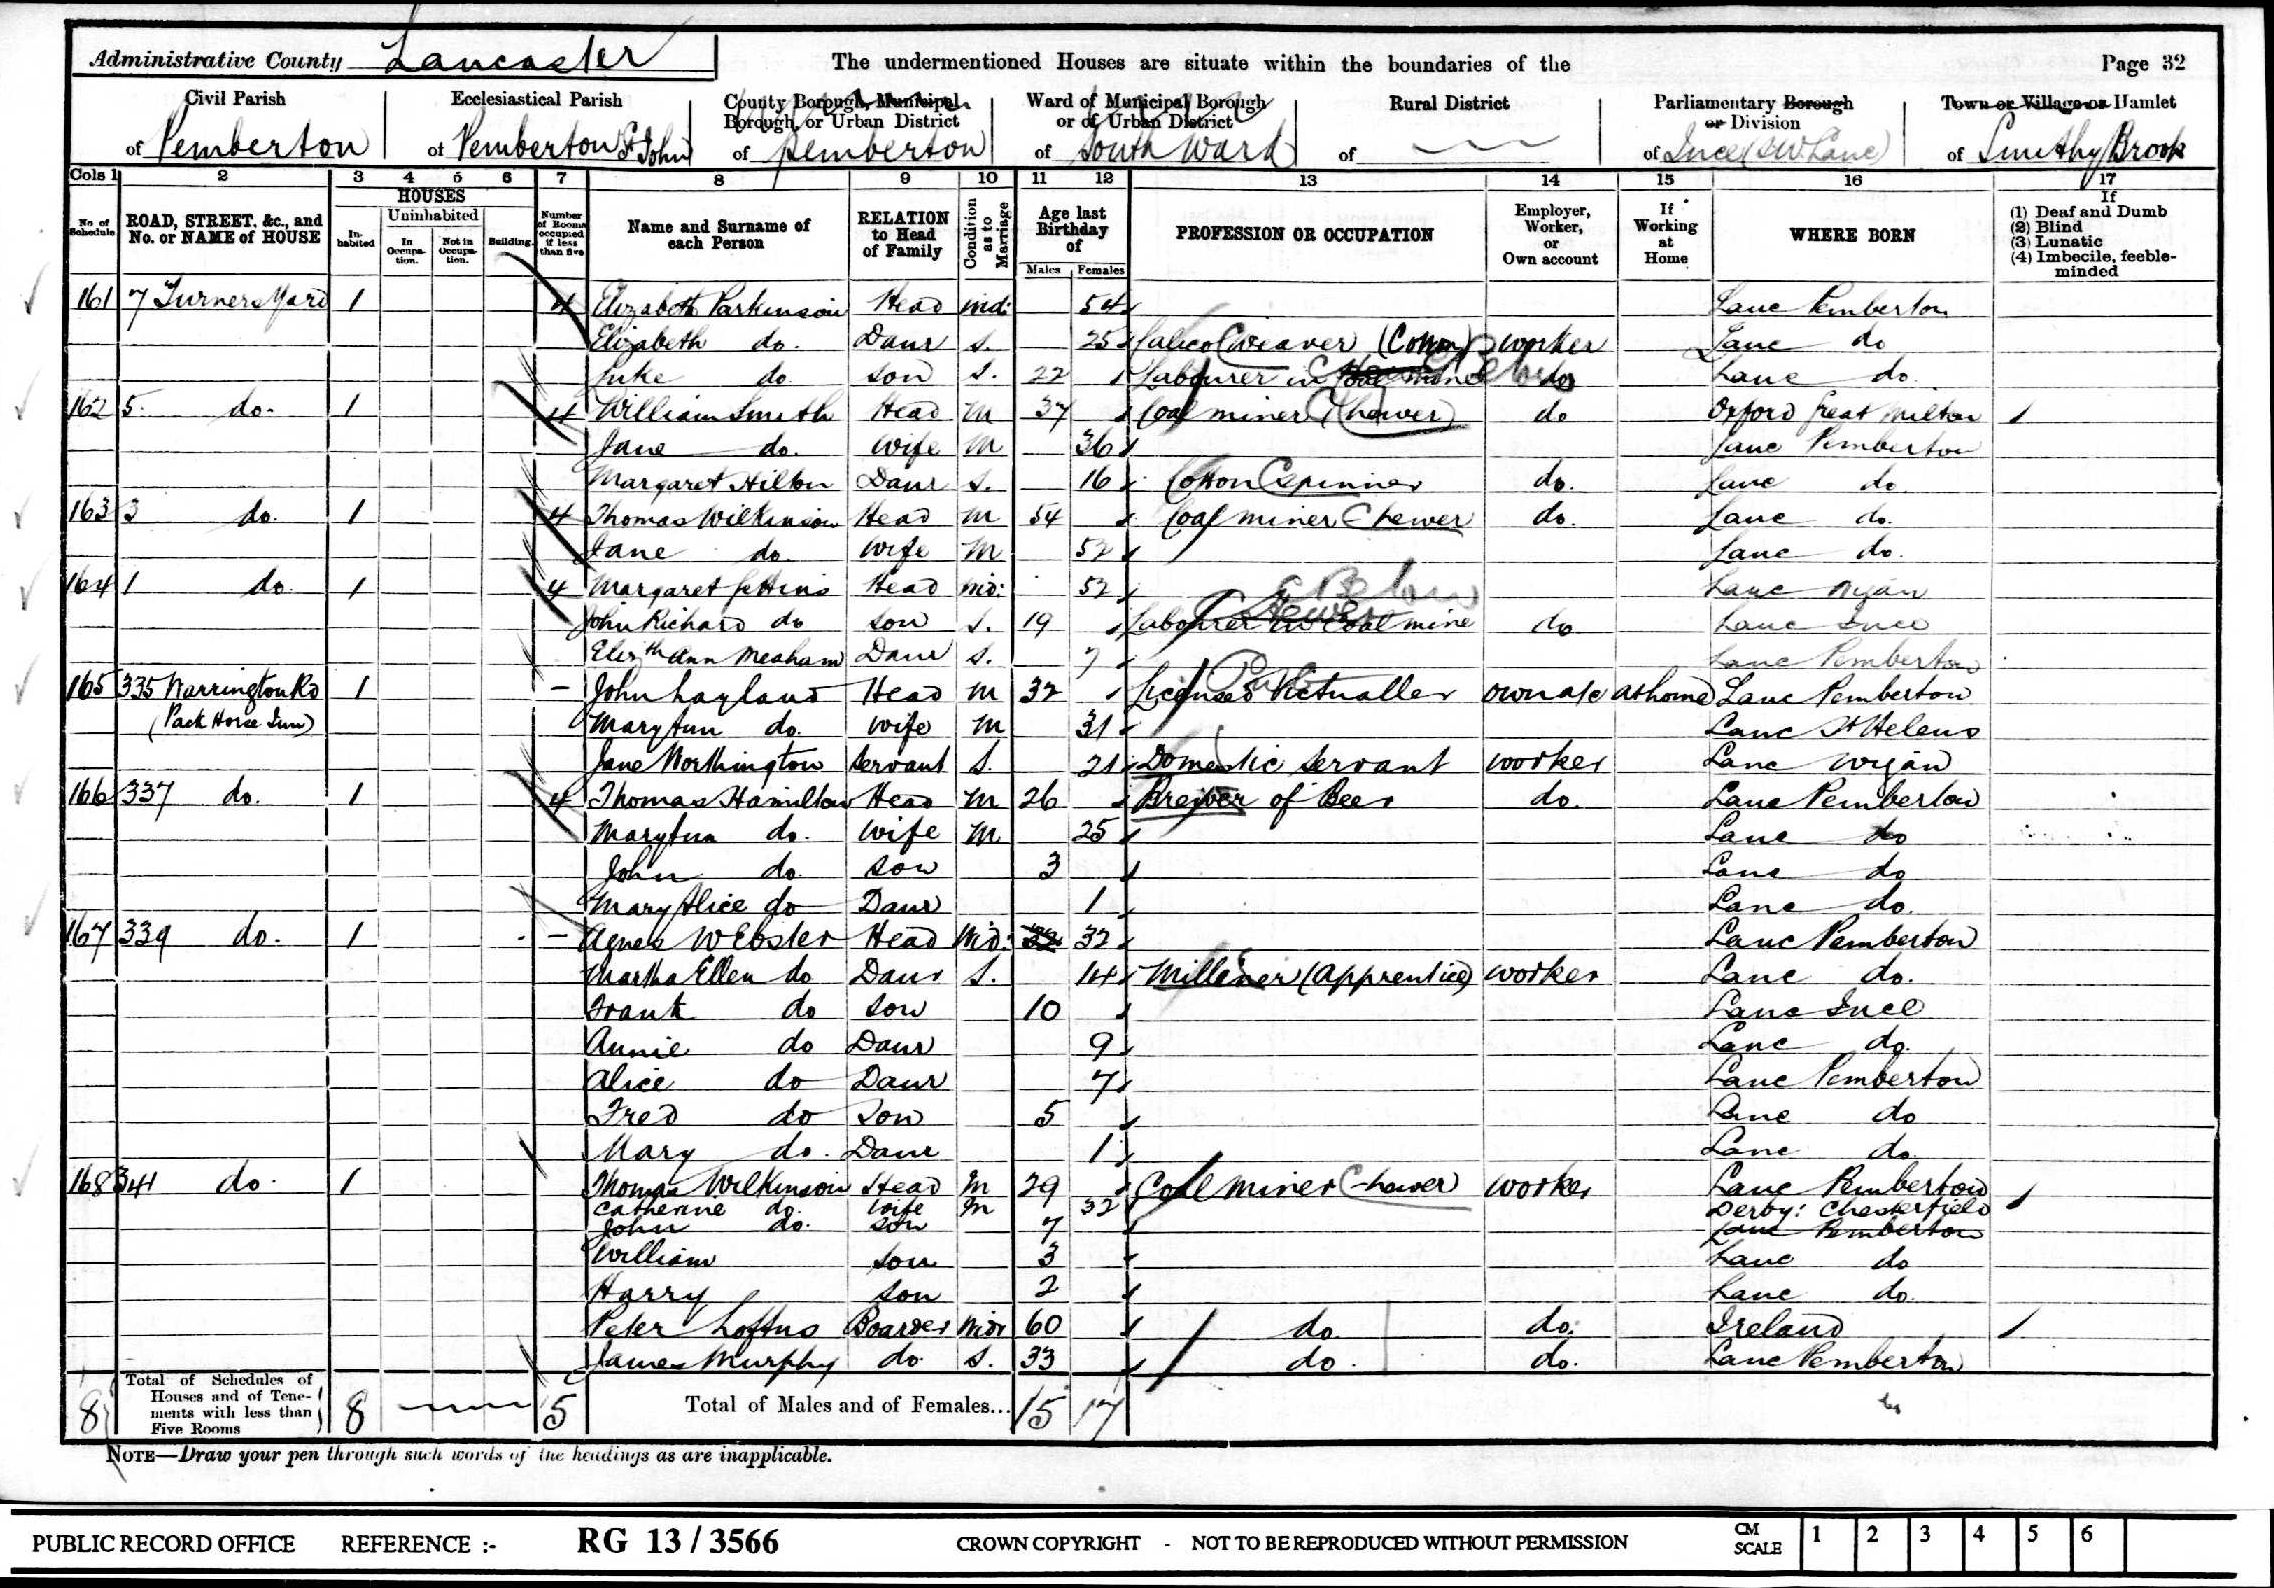 Administrative County Lancaster The undermentioned Houses are situate within the boundaries of the Page 32
Civil Parish of Pemberton
Ecclesiastical Parish of Pemberton St John
County Borough, Municipal Borough, or Urban District of Pemberton
Ward of Municipal Borough or of Urban District of South Ward
Rural District of
Parliamentary Borough or Division of Ince (S.W. Lanc)
Town or Village or Hamlet of Smithy Brook
Cols 1 2 3 4 5 6 7 8 9 10 11 12 13 14 15 16 17
No. of Schedule
ROAD, STREET, &c., and No. or NAME of HOUSE
HOUSES
In-habited
Uninhabited
In Occupa-tion.
Not in Occupa-tion.
Building.
Number of Rooms occupied if less than five
Name and Surname of each Person
RELATION to Head of Family
Condition as to Marriage
Age last Birthday of
Males Females
PROFESSION OR OCCUPATION
Employer, Worker, or Own account
If Working at Home
WHERE BORN
If
(1) Deaf and Dumb
(2) Blind
(3) Lunatic
(4) Imbecile, feeble-minded
161 7 Turners Yard 1 4 Elizabeth Parkinson Head Wid: 54 Lanc Pemberton
Elizabeth do. Daur S. 25 Calico Weaver (Cotton) worker Lanc do
Luke do son S. 22 Labourer in Coal mine do Lanc do.
162 5. do. 1 4 William Smith Head M 37 Coal miner (hewer) do Oxford Great Milton
Jane do. Wife M 36 Lanc Pemberton
Margaret Hilton Daur S. 16 Cotton spinner do. Lanc do
163 3 do. 1 4 Thomas Wilkinson Head M 54 Coal miner hewer do. Lanc do.
Jane do. Wife M 52 Lanc do.
164 1 do. 1 4 Margaret Head Wid: 52 Below Lanc Wigan
John Richard do son S. 19 Hewer Labourer in Coal mine do Lanc Ince
Elizth Ann Meaham Daur S. 7 Lanc Pemberton
165 335 Warrington Rd 1 – John Layland Head M 32 Licensed Victualler own a/c at home Lanc Pemberton
(Pack Horse Inn) Mary Ann do. Wife M 31 Lanc St Helens
Jane Worthington Servant S. 21 Domestic Servant worker Lanc Wigan
166 337 do. 1 4 Thomas Hamilton Head M 26 Brewer of Beer do. Lanc Pemberton
Mary Ann do. Wife M 25 Lanc do
John do. son 3 Lanc do
Mary Alice do Daur 1 Lanc do.
167 339 do. 1 – Agnes Webster Head Wid: 32 32 Lanc Pemberton
Martha Ellen do Daur S. 14 Milliner (Apprentice) worker Lanc do.
Frank do son 10 Lanc Ince
Annie do Daur 9 Lanc do.
Alice do Daur 7 Lanc Pemberton
Fred do Son 5 Lanc do
Mary do. Daur 1 Lanc do.
168 341 do. 1 Thomas Wilkinson Head M 29 Coal miner hewer worker Lanc Pemberton
Catherine do. Wife M 32 Derby: Chesterfield
John do. son 7 Lanc Pemberton
William son 3 Lanc do
Harry son 2 Lanc do.
Peter Loftus Boarder Widr 60 do. do. Ireland
James Murphy do. S. 33 do. do. Lanc Pemberton
8 Total of Schedules of Houses and of Tene-ments with less than Five Rooms 8 5 Total of Males and of Females... 15 17
NOTE—Draw your pen through such words of the headings as are inapplicable.
PUBLIC RECORD OFFICE REFERENCE :- RG 13 / 3566 CROWN COPYRIGHT - NOT TO BE REPRODUCED WITHOUT PERMISSION CM SCALE 1 2 3 4 5 6